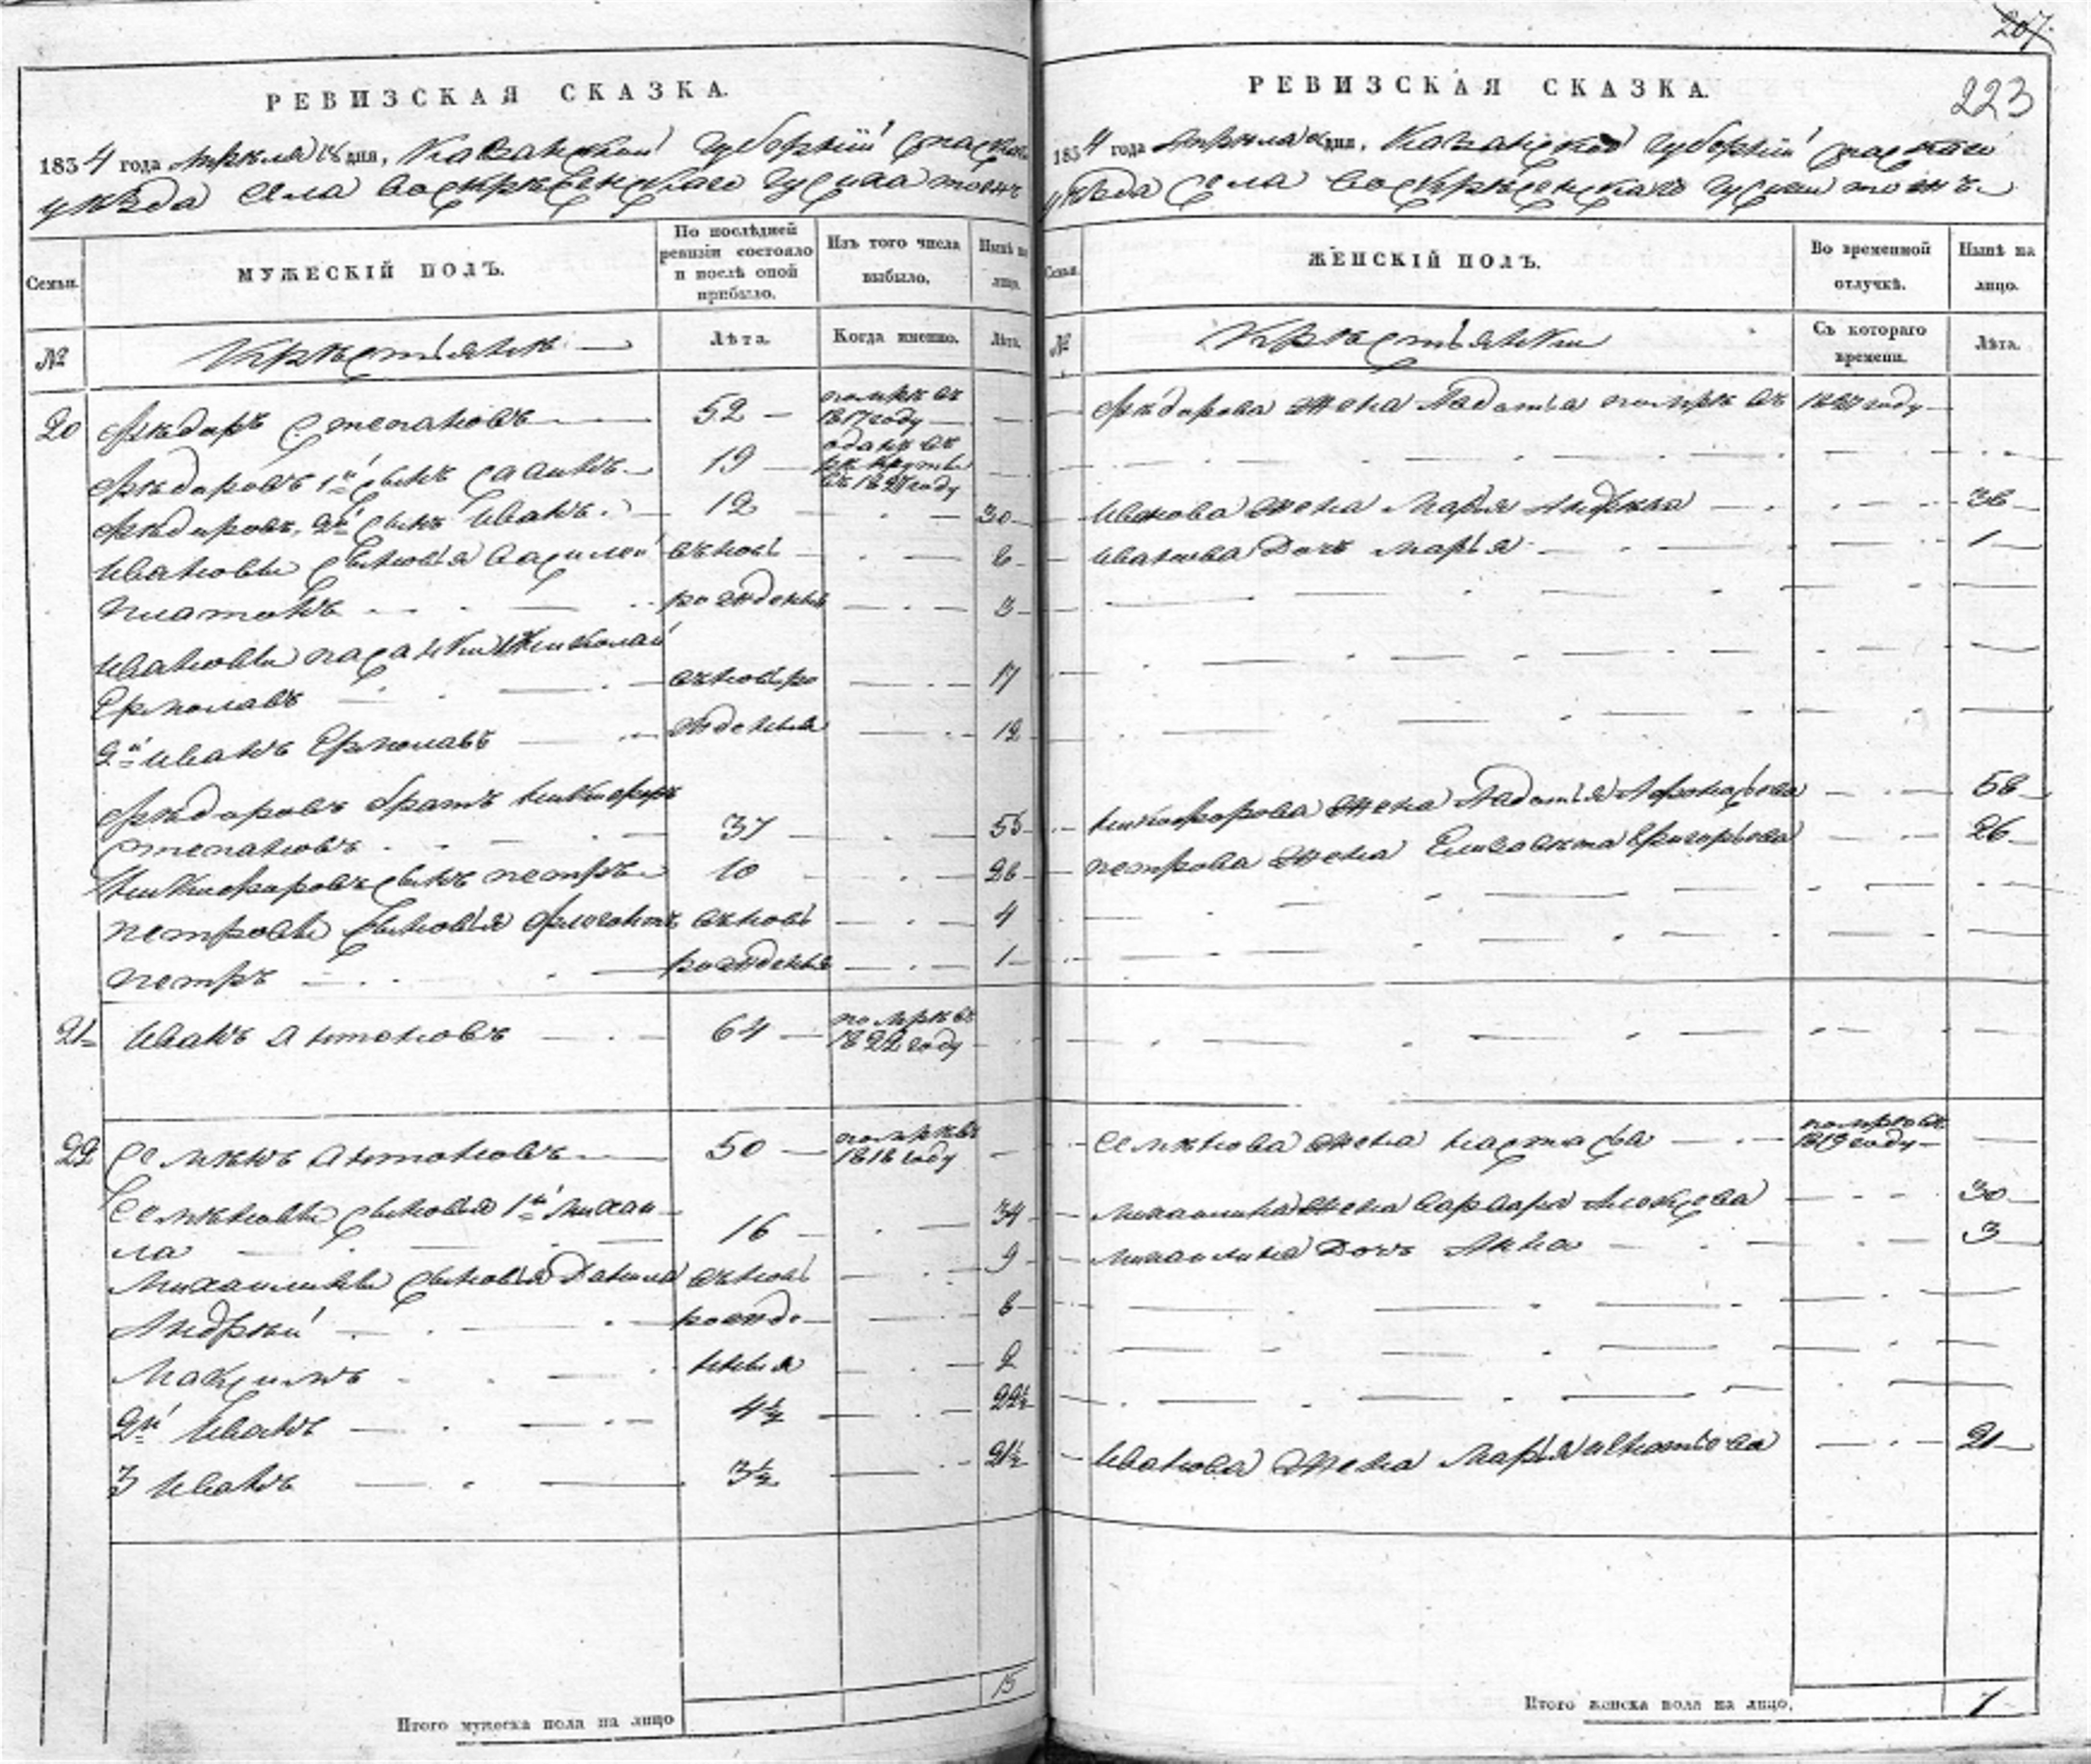 207.
РЕВИЗСКАЯ СКАЗКА.
1834 года Апреля 18 дня, Казанской Губернии Спаского
уезда Села Воскресенскаго Гусиха тожъ
Семьи. МУЖЕСКІЙ ПОЛЪ. По послѣдней ревизіи состояло и послѣ оной прибыло. Изъ того числа выбыло. Нынѣ на лицо.
№ Крестьяне Лѣта. Когда именно. Лѣта.
20 Федоръ Степановъ 52 помре въ 1817 году
Федоровъ 1й сынъ Савинъ 19 оданъ въ рекруты въ 1821 году
Федоровъ 2й сынъ Иванъ 12 30
Ивановы сыновья Василей вновь 6
Платонъ рожденъ 3
Ивановы пасынки Николай
Ермолавъ вновь ро 17
2й Иванъ Ермолавъ жденыя 12
Федоровъ братъ Никифоръ
Степановъ 37 55
Никифоровъ сынъ петръ 10 26
петровы сыновья вновь 4
петръ рожденыя 1
21 Иванъ Антоновъ 64 помре въ 1822 году
22 Семенъ Антоновъ 50 помре въ 1818 году
Семеновы сыновья 1й Михаи
ла 16 34
Михаилины сыновья Данила вновь 9
Андрей рожде 6
Максимъ ныя 2
2й Иванъ 4½ 22½
3 Иванъ 3½ 21½
Итого мужеска пола на лицо 15
РЕВИЗСКАЯ СКАЗКА.
223
1834 года Апреля дня, Казанской Губернии Спаского
уезда Села Воскресенскаго Гусиха тожъ
Семьи. ЖЕНСКІЙ ПОЛЪ. Во временной отлучкѣ. Нынѣ на лицо.
№ Крестьянки Съ котораго времени. Лѣта.
Федорова жена Авдотья помре въ году
Иванова жена Марья 36
Иванова Дочь Марья 1
Никифорова жена Авдотья Афонасьева 56
петрова жена Елизавета Григорьева 26
Семенова жена Настасья помре въ 1819 году
Михаилина жена Варвара Алексеева 30
Михаилина Дочь Анна 3
Иванова жена Марья Игнатьева 21
Итого женска пола на лицо. 7